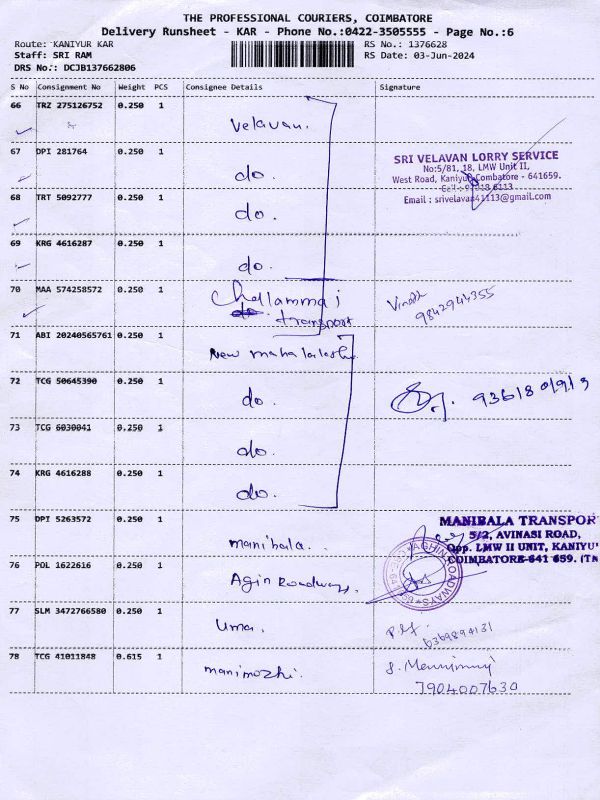 THE PROFESSIONAL COURIERS, COIMBATORE
Delivery Runsheet - KAR - Phone No.:0422-3505555 - Page No.:6
Route: KANIYUR KAR
RS No.: 1376628
Staff: SRI RAM
RS Date: 03-Jun-2024
DRS No.: DCJB137662806
S No Consignment No Weight PCS Consignee Details Signature
66 TRZ 275126752 0.250 1
Velavan.
67 DPI 281764 0.250 1
do.
SRI VELAVAN LORRY SERVICE
No:5/81, 18, LMW Unit II,
West Road, Kaniyur, Coimbatore - 641659.
Email : srivelavan41113@gmail.com
68 TRT 5092777 0.250 1
do.
69 KRG 4616287 0.250 1
do.
70 MAA 574258572 0.250 1
Chellammai
do.
transport
Vinoth
9842944355
71 ABI 20240565761 0.250 1
New mahalakshmi
72 TCG 50645390 0.250 1
do.
9361801913
73 TCG 6030041 0.250 1
do.
74 KRG 4616288 0.250 1
do.
75 DPI 5263572 0.250 1
manibala.
MANIBALA TRANSPOR
5/2, AVINASI ROAD,
Opp. LMW II UNIT, KANIYU
COIMBATORE-641 659. (TN
76 POL 1622616 0.250 1
Agin Roadways.
77 SLM 3472766580 0.250 1
Uma.
6369894131
78 TCG 41011848 0.615 1
manimozhi.
7904007630